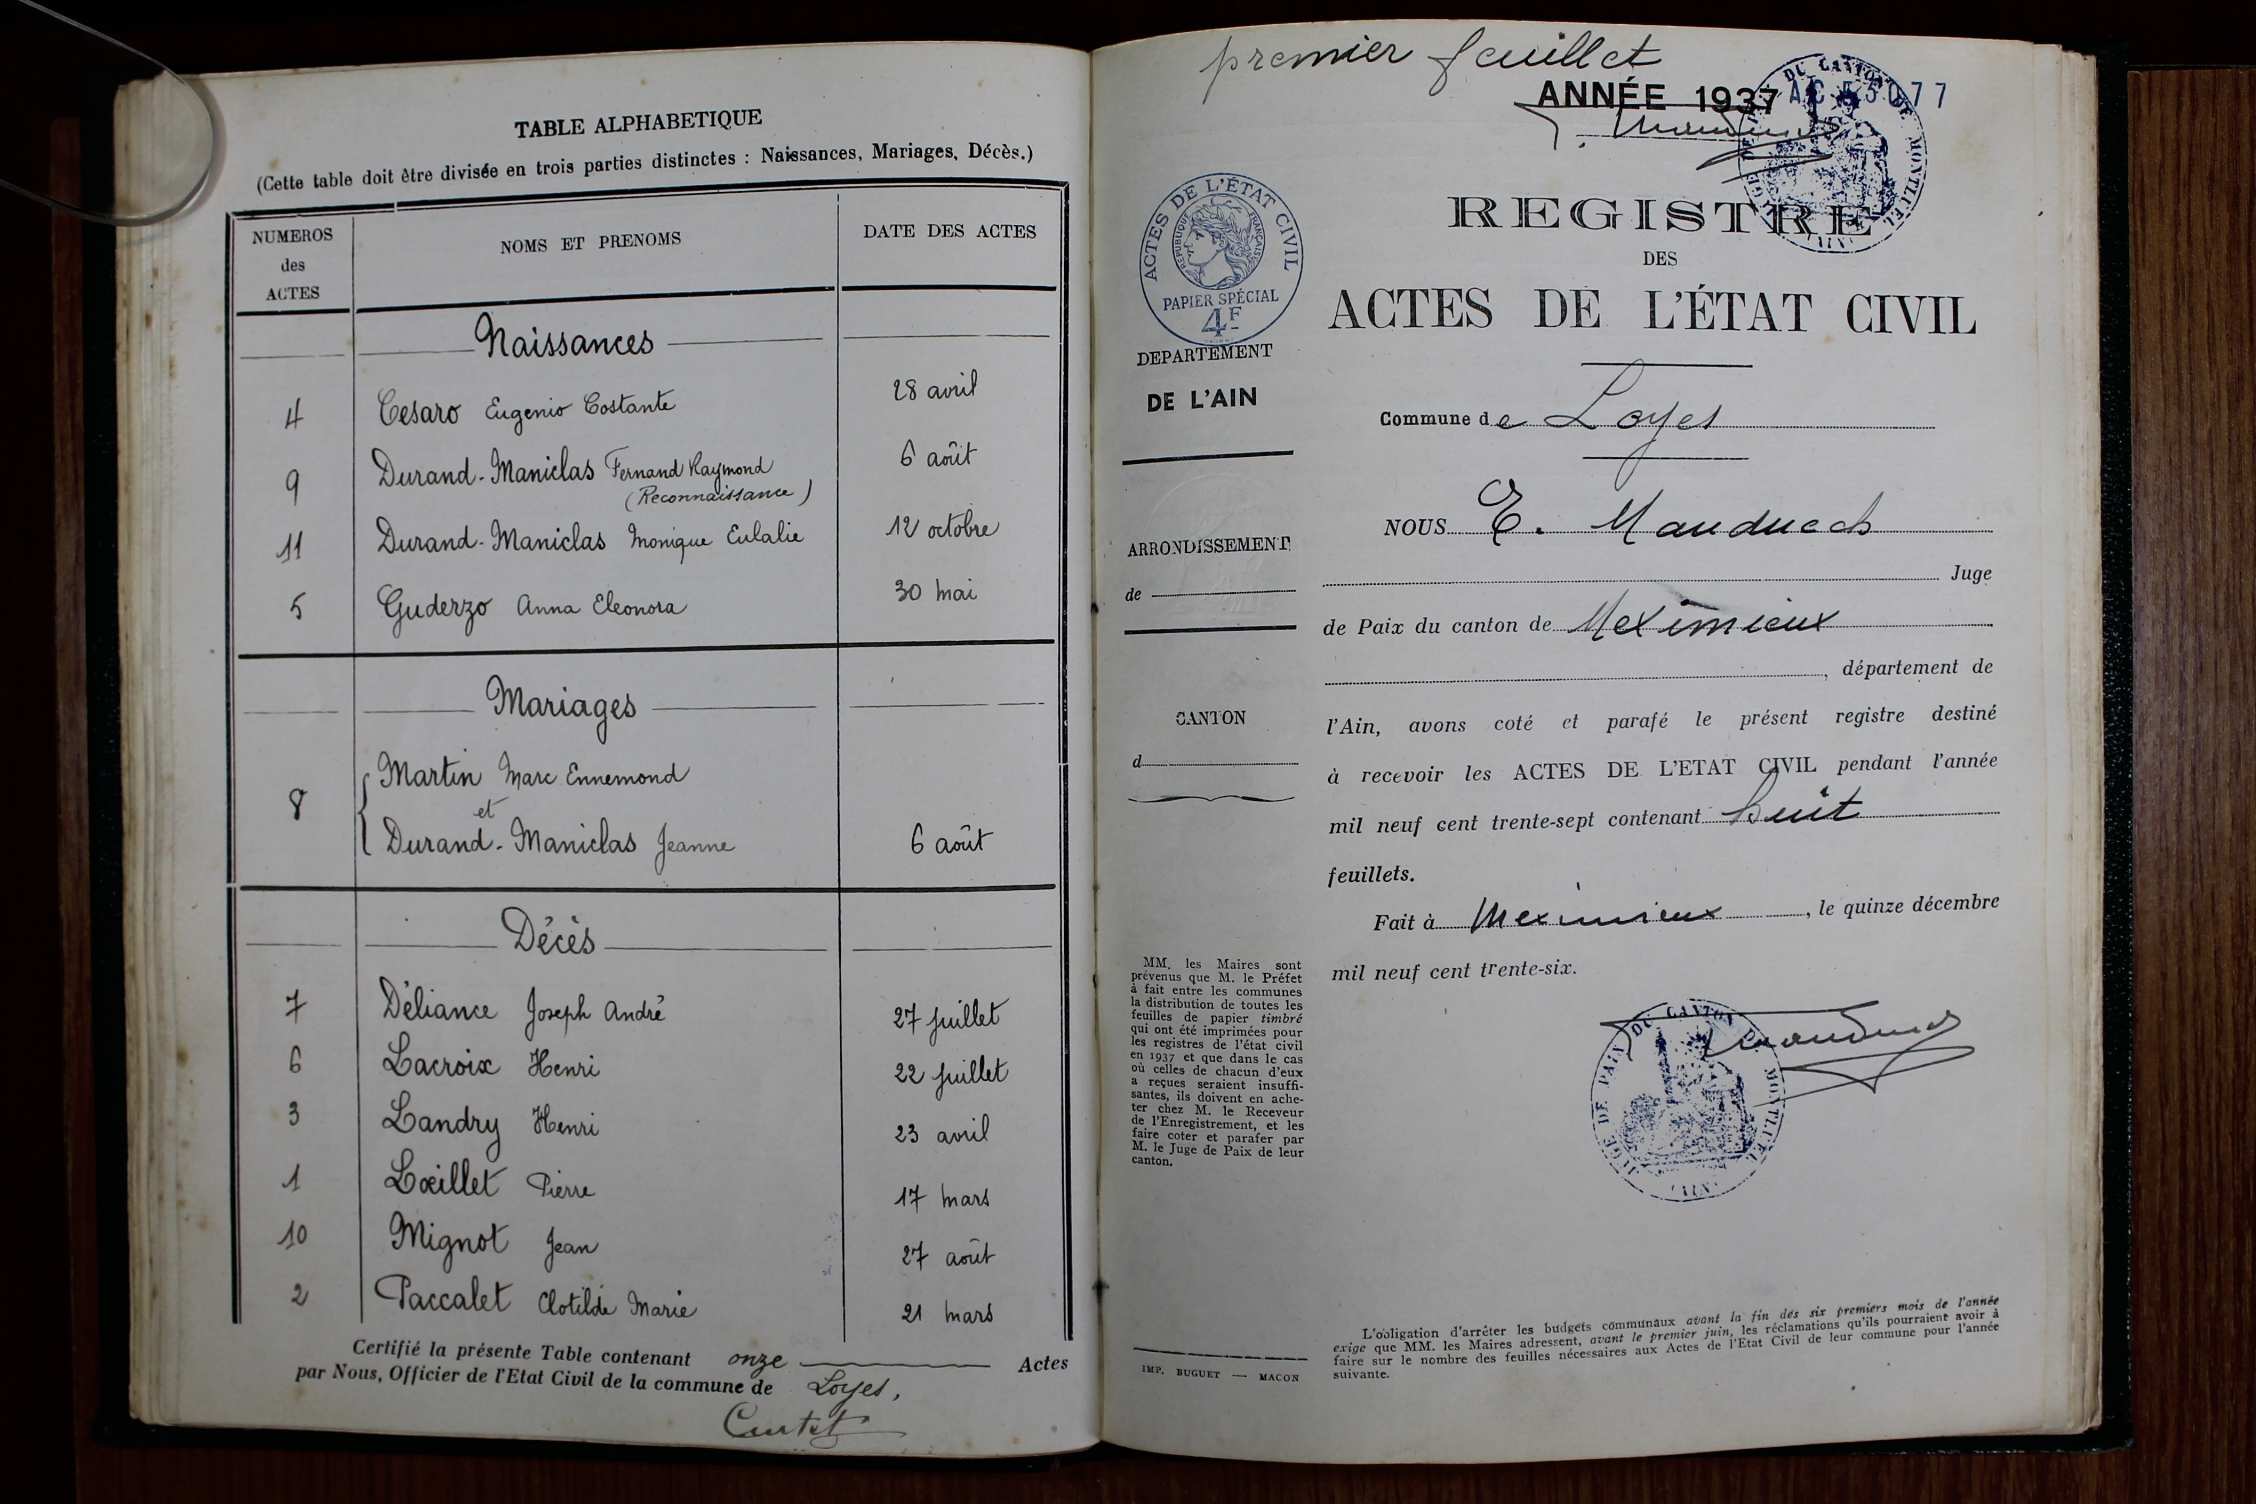 TABLE ALPHABETIQUE
(Cette table doit être divisée en trois parties distinctes : Naissances, Mariages, Décès.)
NUMEROS des ACTES
NOMS ET PRENOMS
DATE DES ACTES
Naissances
4 Cesaro Eugenio Costante 28 avril
9 Durand-Maniclas Fernand Raymond 6 août
(Reconnaissance)
11 Durand-Maniclas Monique Eulalie 12 octobre
5 Guderzo Anna Eleonora 30 mai
Mariages
Martin Marc Ennemond
8 et
Durand-Maniclas Jeanne 6 août
Décès
7 Déliance Joseph André 27 juillet
6 Lacroix Henri 22 juillet
3 Landry Henri 23 avril
1 Lœillet Pierre 17 mars
10 Mignot Jean 27 août
2 Paccalet Clotilde Marie 21 mars
Certifié la présente Table contenant onze Actes
par Nous, Officier de l'Etat Civil de la commune de Loyes,
Curtet
premier feuillet
ANNÉE 1937
DU CANTON DE MONTLUEL
ACTES DE L'ÉTAT CIVIL
REPUBLIQUE FRANÇAISE
PAPIER SPÉCIAL
4F
DEPARTEMENT
DE L'AIN
ARRONDISSEMENT
de
CANTON
d
MM. les Maires sont
prévenus que M. le Préfet
à fait entre les communes
la distribution de toutes les
feuilles de papier timbré
qui ont été imprimées pour
les registres de l'état civil
en 1937 et que dans le cas
où celles de chacun d'eux
a reçues seraient insuffi-
santes, ils doivent en ache-
ter chez M. le Receveur
de l'Enregistrement, et les
faire coter et parafer par
M. le Juge de Paix de leur
canton.
IMP. BUGUET — MACON
REGISTRE
DES
ACTES DE L'ÉTAT CIVIL
Commune de Loyes
NOUS E. Mauduech
Juge
de Paix du canton de Meximieux
, département de
l'Ain, avons coté et parafé le présent registre destiné
à recevoir les ACTES DE L'ETAT CIVIL pendant l'année
mil neuf cent trente-sept contenant huit
feuillets.
Fait à Meximieux, le quinze décembre
mil neuf cent trente-six.
JUGE DE PAIX DU CANTON DE MONTLUEL
(AIN)
L'obligation d'arrêter les budgets communaux avant la fin des six premiers mois de l'année
exige que MM. les Maires adressent, avant le premier juin, les réclamations qu'ils pourraient avoir à
faire sur le nombre des feuilles nécessaires aux Actes de l'Etat Civil de leur commune pour l'année
suivante.